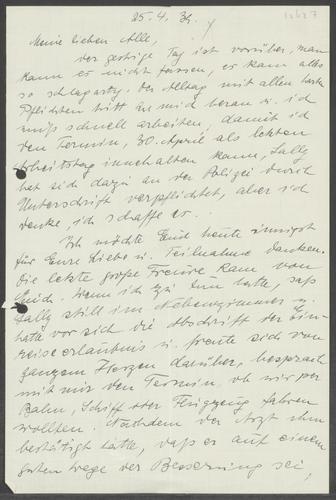 25.4.36.
Meine lieben Alle,
der gestrige Tag ist vorüber, man
kann es nicht fassen, es kam alles
so schlagartig. Der Alltag mit allen harten
Pflichten tritt an mich heran u. ich
muß schnell arbeiten, damit ich
den Termin, 30. April als letzten
Arbeitstag innehalten kann, Sally
hat sich dazu an der Polizei durch
Unterschrift verpflichtet, aber ich
denke, ich schaffe es..
Ich möchte Euch heute innigst
für Eure Liebe u. Teilnahme danken.
Die letzte große Freude kam von
Euch. Wenn ich zu tun hatte, saß
Sally still im Nebenzimmer u.
hatte vor sich die Abschrift der Ein-
reiseerlaubnis u. freute sich von
ganzem Herzen darüber, besprach
mit mir den Termin, ob wir per
Bahn, Schiff oder Flugzeug fahren
wollten. Nachdem der Arzt ihm
bestätigt hatte, daß er auf einem
guten Wege der Besserung sei,